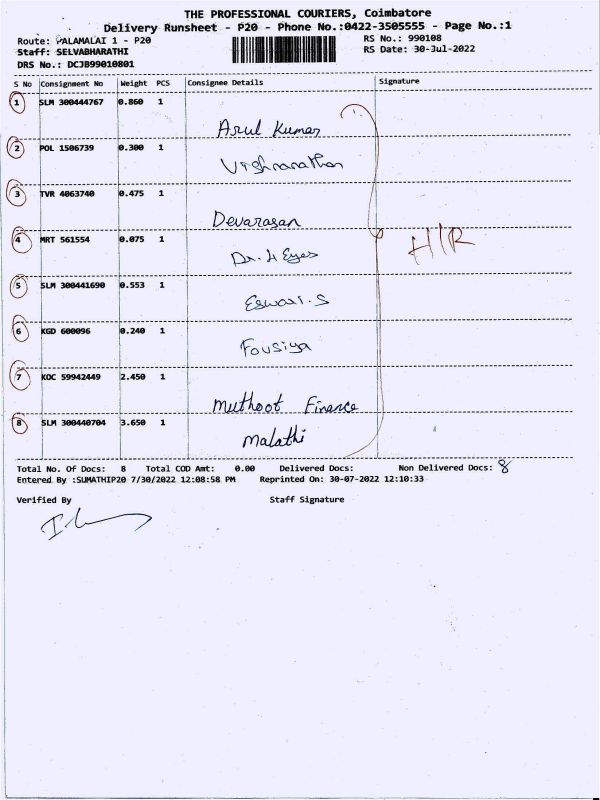 THE PROFESSIONAL COURIERS, Coimbatore
Delivery Runsheet - P20 - Phone No.:0422-3505555 - Page No.:1
Route: PALAMALAI 1 - P20 RS No.: 990108
Staff: SELVABHARATHI RS Date: 30-Jul-2022
DRS No.: DCJB99010801
S No Consignment No Weight PCS Consignee Details Signature
1 SLM 300444767 0.860 1
Arul Kumar
2 POL 1506739 0.300 1
3 TVR 4063740 0.475 1
Devarasan
4 MRT 561554 0.075 1
Dr. H Eyes
H/R
5 SLM 300441690 0.553 1
Eswari.S
6 KGD 600096 0.240 1
Fousiya
7 KOC 59942449 2.450 1
Muthoot Finance
8 SLM 300440704 3.650 1
Malathi
Total No. Of Docs: 8 Total COD Amt: 0.00 Delivered Docs: Non Delivered Docs: 8
Entered By :SUMATHIP20 7/30/2022 12:08:58 PM Reprinted On: 30-07-2022 12:10:33
Verified By Staff Signature